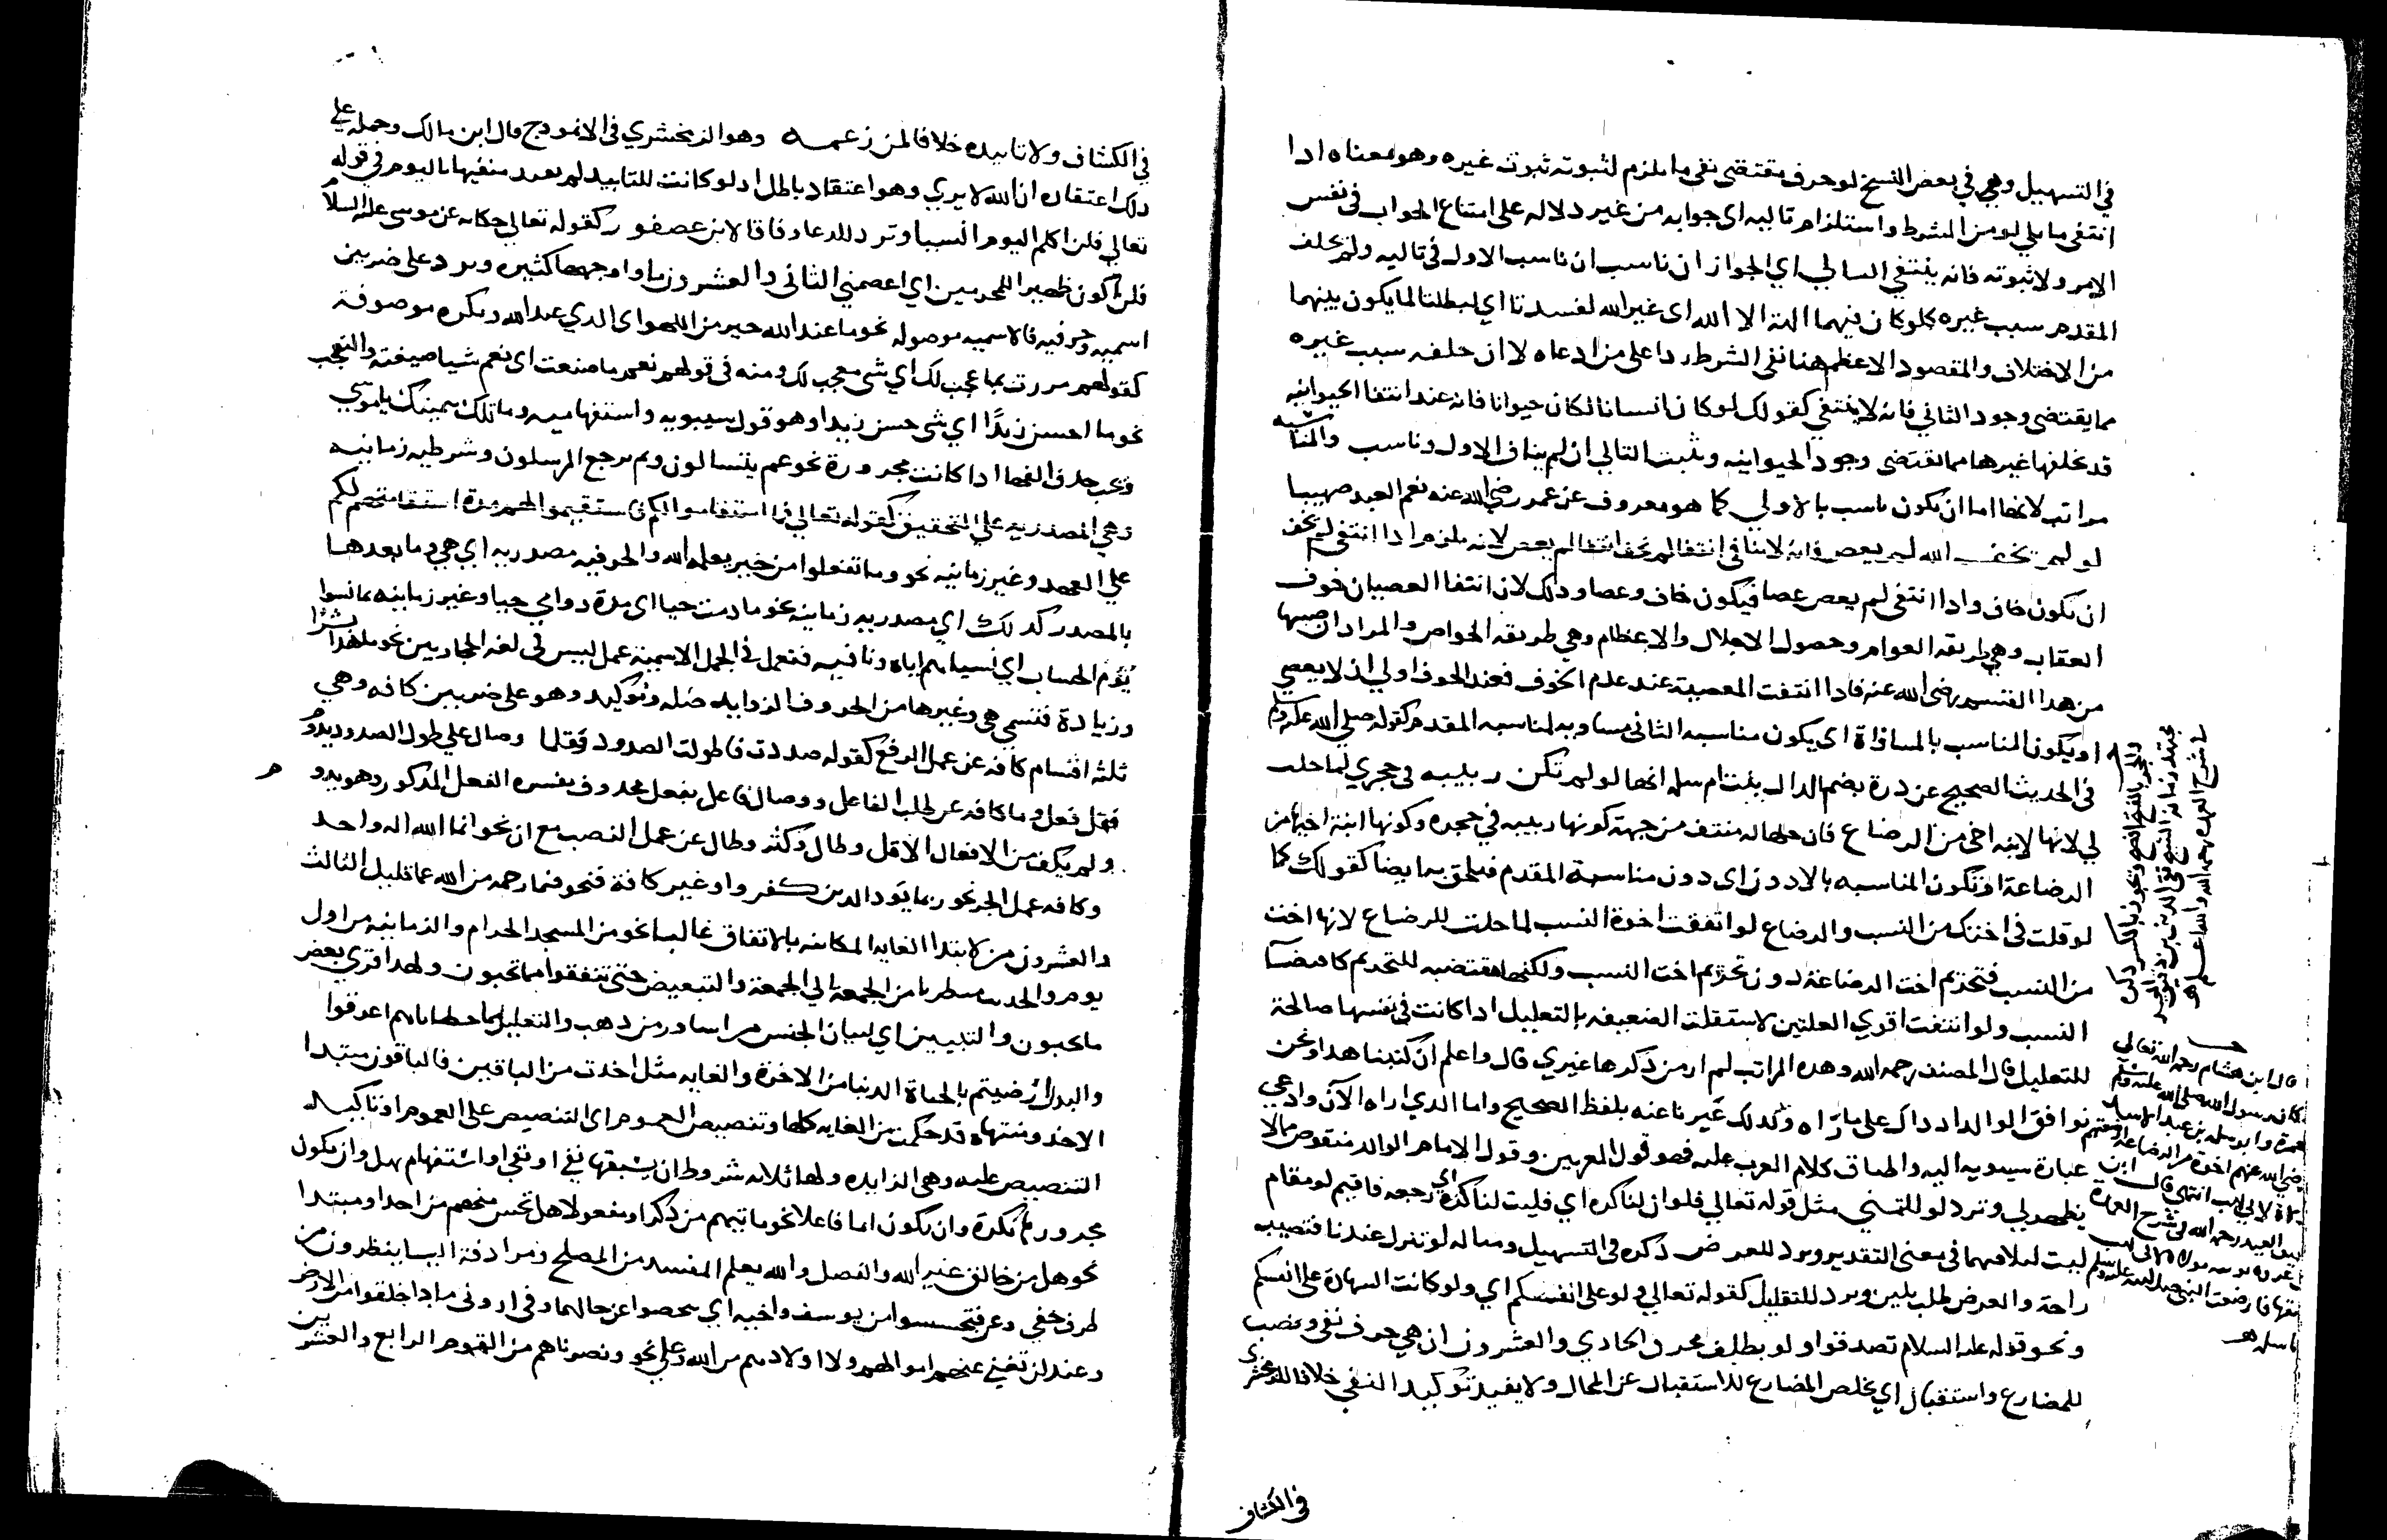 في التسهيل وهي في بعض النسخ لو حرف يقتضي نفي ما يلزم لثبوته ثبوت غيره وهو معناه اذا
انتفى ما يلي لو من الشرط واستلزام تاليه اي جوابه من غير دلاله على امتناع الجواب في نفس
الامر ولا ثبوته فانه ينتفي التالي اي الجواز ان ناسب ان ناسب الاول في تاليه ولم يخلف
المقدم سبب غيره كلو كان فيهما الهة الا الله اي غير الله لفسدتا اي لبطلتا لما يكون بينهما
من الاختلاف والمقصود الاعظم هنا نفي الشرط ردا على من ادعاه لا ان خلفه سبب غيره
مما يقتضي وجود الثاني فانه لا ينتفي كقولك لو كان انسانا لكان حيوانا فانه عند انتفا الحيوانيه
قد يخلفها غيرها مما يقتضي وجود الحيوانيه ويثبت التالي ان لم يناف الاول وناسب والمناسبه
مراتب لانها اما ان يكون ناسب بالاولى كما هو معروف عن عمر رضي الله عنه نعم العبد صهيب
لو لم يخف الله لم يعص فانه لا ينافي انتفا لم يخف انتفا لم يعص لانه يلزم اذا انتفى لم يخف
ان يكون خاف واذا انتفى لم يعص عصا فيكون خاف وعصا وذلك لان انتفا العصيان خوف
العقاب وهي طريقه العوام وحصول الاجلال والاعظام وهي طريقه الخواص والمراد ان صهيبا
من هذا القسم رضي الله عنه فاذا انتفت المعصية عند عدم الخوف فعند الخوف اولى ان لا يعصي
او يكون المناسب بالمساواة اي يكون مناسبه الثاني مساويه لمناسبه المقدم كقوله صلى الله عليه وسلم
في الحديث الصحيح عن درة بضم الدال بنت ام سلمه انها لو لم تكن ربيبه في حجري لما حلت
لي لانها لابنه اخي من الرضاع فان حلها له منتف من جهة كونها ربيبه في حجره وكونها ابنة اخيه من
الرضاعة او تكون المناسبه بالادون اي دون مناسبة المقدم فيلحق به ايضا كقولك كما
لو قلت في اختك من النسب والرضاع لو انتفت اخوة النسب لما حلت للرضاع لانها اخت
من النسب فتحريم اخت الرضاعة دون تحريم اخت النسب ولكنها مقتضيه للتحريم كاقتضا
النسب ولو انتفت اقوي العلتين لاستقلت الضعيفه بالتعليل اذا كانت في نفسها صالحة
للتعليل قال المصنف رحمه الله وهذه المراتب لم ار من ذكرها غيري قال واعلم ان كتبنا هذا ونحن
نوافق الوالد اذ ذاك على ما رآه وكذلك غيرنا عنه بلفظ الصحيح واما الذي اراه الآن وادعي
عبارة سيبويه اليه واطباق كلام العرب عليه فهو قول المعربين وقول الامام الوالد منقوض بما لا
يظهر لي وترد لو للتمني مثل قوله تعالى فلو ان لنا كرة اي فليت لنا كرة اي رجعه فاقيم لو مقام
ليت لتلاقيهما في معنى التقدير وترد للعرض ذكره في التسهيل ومثاله لو تنزل عندنا فتصيب
راحة والعرض طلب بلين وترد للتقليل كقوله تعالى ولو على انفسكم اي ولو كانت الشهادة على انفسكم
ونحو قوله عليه السلام تصدقوا ولو بظلف محرق الحادي والعشرون لن هي حرف نفي ونصب
للمضارع واستقبال اي يخلص المضارع للاستقبال عن الحال ولا يفيد توكيد النفي خلافا للزمخشري
في الكشاف
والحجر بالفتح
ما شرح العمده رحمه الله والله اعلم اهـ
قال ابن هشام رحمه الله تعالى
كان رسول الله صلى الله عليه وسلم
حمزة وابو سلمه بن عبد الاسد
رضي الله عنهم اخوة من الرضاعة ارضعتهم
العيد رحمه الله في شرح العمدة
فارضعت النبي صلى الله عليه وسلم
ابا سلمه اهـ
في الكشاف ولا تابيده خلافا لمن زعمه وهو الزمخشري في الانموذج قال ابن مالك وحمله على
ذلك اعتقاده ان الله لا يرى وهو اعتقاد باطل اذ لو كانت للتابيد لم يعيد منفيها باليوم في قوله
تعالى فلن اكلم اليوم انسيا وترد للدعا وفاقا لابن عصفور كقوله تعالى حكايه عن موسى عليه السلام
فلن اكون ظهيرا للمجرمين اي اعصمني الثاني والعشرون ما واوجهها كثيره وترد على ضربين
اسميه وحرفيه فالاسميه موصوله نحو ما عند الله خير من اللهو اي الذي عند الله ونكره موصوفة
كقولهم مررت بما معجب لك اي شي معجب لك ومنه في قولهم نعم ما صنعت اي نعم شيا صنعته والتعجب
نحو ما احسن زيدا اي شي حسن زيدا وهو قول سيبويه واستفهاميه وما تلك بيمينك يا موسي
ويجب حذف الفها اذا كانت مجرورة نحو عم يتسالون وبم يرجع المرسلون وشرطيه زمانيه
وهي المصدريه على التحقيق كقوله تعالى فما استقاموا لكم فاستقيموا لهم مدة استقامتهم لكم
علي العهد وغير زمانيه نحو وما تفعلوا من خير يعلمه الله والحرفيه مصدريه اي هي وما بعدها
بالمصدر كذلك اي مصدريه زمانيه نحو ما دمت حيا اي مدة دوامي حيا وغير زمانيه بما نسوا
يوم الحساب اي نسيانهم اياه ونافيه فتعمل في الجمل الاسمية عمل ليس في لغه الحجازيين نحو ما هذا بشرا
وزيادة فتسمى هي وغيرها من الحروف الزوايد صله وتوكيد وهو على ضربين كافه وهي
ثلثه اقسام كافه عن عمل الرفع كقوله صددت فاطولت الصدود وقلما وصال على طول الصدود يدوم
فقل فعل وما كافه عن طلب الفاعل ووصال فاعل بفعل محذوف يفسره الفعل المذكور وهو يدوم
ولم يكف من الافعال الا قل وطال وكثر وكافه عن عمل النصب مع ان نحو انما الله اله واحد
وكافه عمل الجر نحو ربما يود الذين كفروا وغير كافة فنحو فبما رحمه من الله عما قليل الثالث
والعشرون من لابتدا الغايه المكانيه بالاتفاق غالبا نحو من المسجد الحرام والزمانيه من اول
يوم والحديث مطرنا من الجمعة الي الجمعة والتبعيض حتى تنفقوا مما تحبون ولهذا قرئ بعض
ما تحبون والتبيين اي لبيان الجنس من اساور من ذهب والتعليل مما خطاياهم اغرقوا
والبدل ارضيتم بالحياة الدنيا من الاخرة والغايه مثل اخذت من الباقين فالباقون مبتدا
الاخذ ومنتهاه قد حكمت من الغايه كلها وتنصيص العموم اي التنصيص على العموم او تاكيد
التنصيص عليه وهي الزايده ولها ثلاثه شروط ان يسبقها نفي او نهي او استفهام بهل وان يكون
مجرورها نكرة وان يكون اما فاعلا نحو ما ياتيهم من ذكر او مفعولا هل تحس منهم من احد او مبتدا
نحو هل من خالق غير الله والفصل والله يعلم المفسد من المصلح ومرادفة البا ينظرون من
طرف خفي وعن فتحسسوا من يوسف واخيه اي تفحصوا عن حالهما وفي اروني ماذا خلقوا من الارض
وعند لن تغني عنهم اموالهم ولا اولادهم من الله وعلى نحو ونصرناهم من القوم الرابع والعشرين